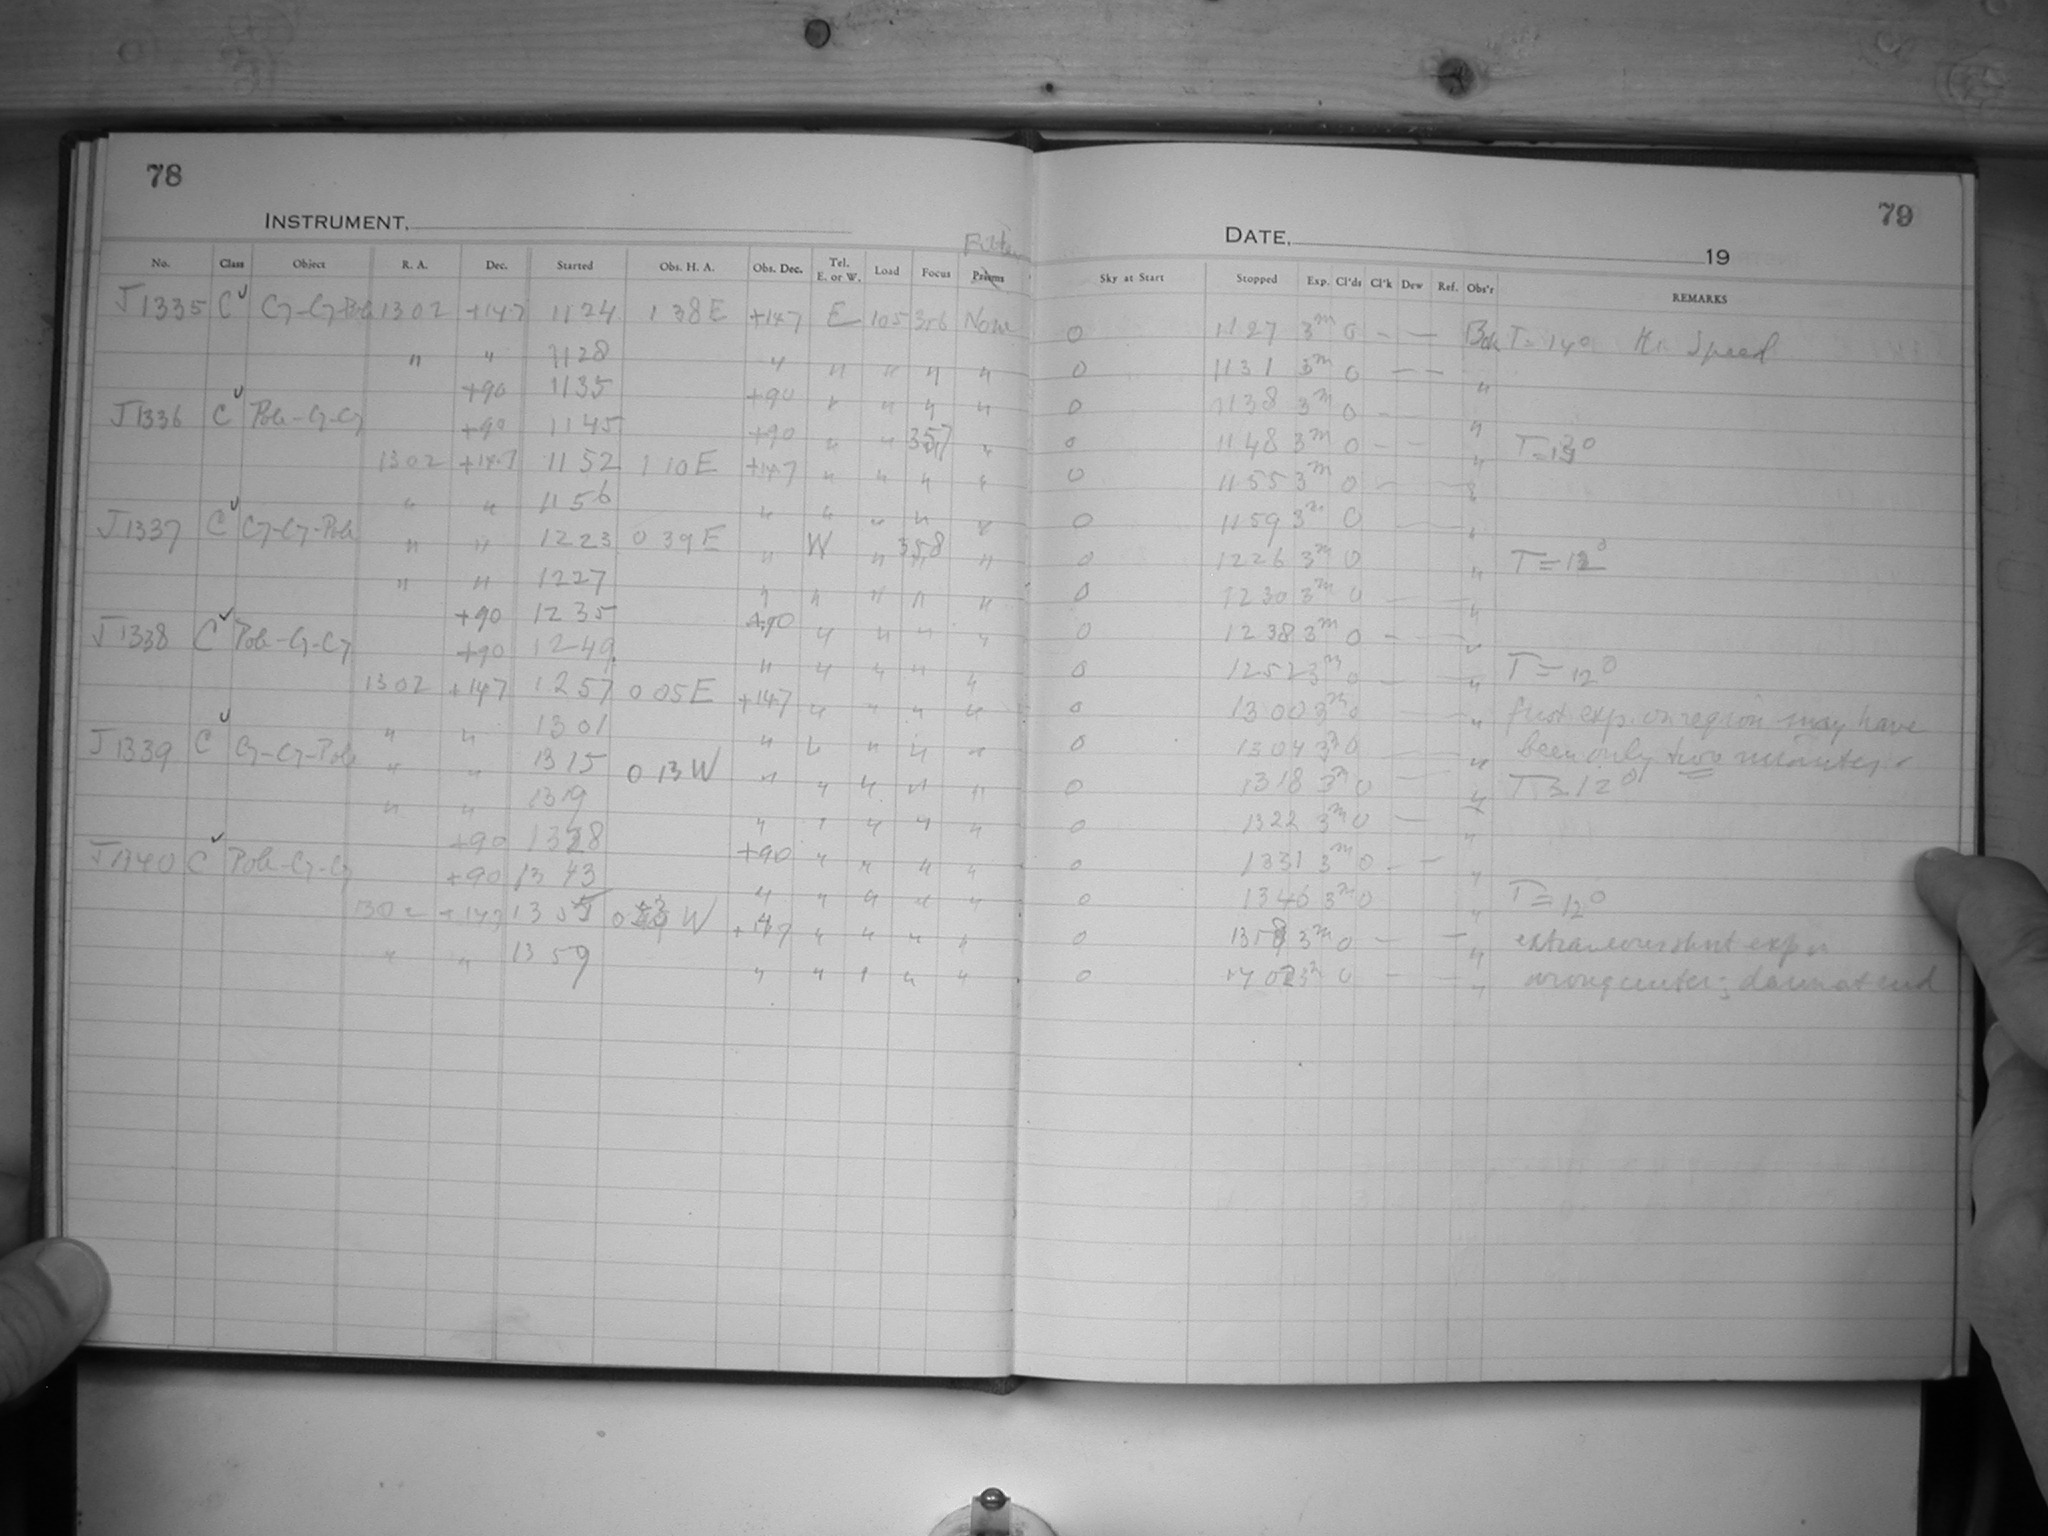 78
79
INSTRUMENT,
DATE, 19
No. Class Object R. A. Dec. Started Obs. H. A. Obs. Dec. Tel. E. or W. Load Focus Prisms Sky at Start Stopped Exp. Cl'ds Cl'k Dew Ref. Obs'r REMARKS
J1335 C ✓ C7-C7-Pole 1302 +147 1124 138E +147 E 105 356 None 0 1127 3m 0 - - Bok T=14° Speed
" " 1128 " " " " " 0 1131 3m 0 - - "
+90 1135 +90 " " " " 0 1138 3m 0 - - "
J1336 C ✓ Pole-C7-C7 +90 1145 +90 " " 357 " 0 1148 3m 0 - - " T=13°
1302 +147 1152 110E +147 " " " " 0 1155 3m 0 - - "
" " 1156 " " " " " 0 1159 3m 0 - - "
J1337 C ✓ C7-C7-Pole " " 1223 0 39E " W " 358 " 0 1226 3m 0 " T=12°
" " 1227 " " " " " 0 1230 3m 0 - - "
+90 1235 +90 " " " " 0 1238 3m 0 - - "
J1338 C ✓ Pole-C7-C7 +90 1249 " " " " " 0 1252 3m 0 - - " T=12°
1302 +147 1257 0 05E +147 " " " " 0 1300 3m 0 - - " first exp. on region may have
" " 1301 " " " " " 0 1304 3m 0 - - " been only two minutes.
J1339 C ✓ C7-C7-Pole " " 1315 0 13W " " " " " 0 1318 3m 0 - - " T=12°
" " 1319 " " " " " 0 1322 3m 0 - "
+90 1328 +90 " " " " 0 1331 3m 0 - - "
J1340 C ✓ Pole-C7-C7 +90 1343 " " " " " 0 1346 3m 0 " T=12°
1302 +147 1355 0 53 W +147 " " " " 0 1358 3m 0 - - " extraneous short exp on
" " 1359 " " " " " 0 1402 3m 0 - - " wrong center; dawn at end